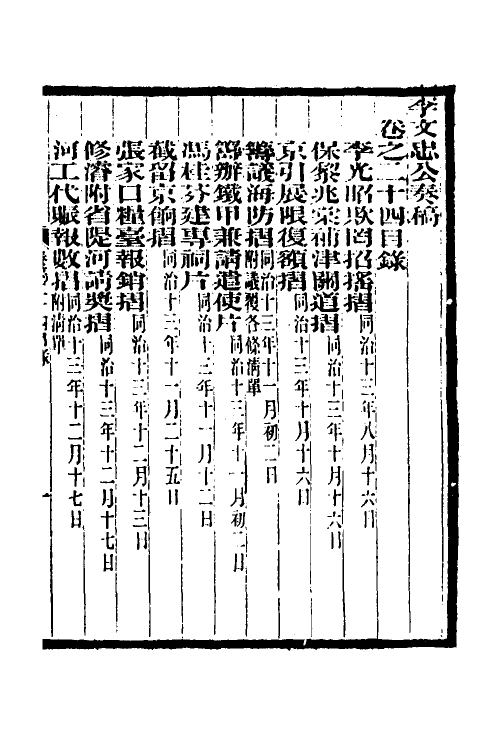 李文忠公奏稿
卷之二十四目錄
李光昭欺罔招搖摺同治十三年八月十六日
保黎兆棠補津關道摺同治十三年十月十六日
京引展限復額摺同治十三年十月十六日
籌議海防摺附議覆各條清單同治十三年十一月初二日
籌辦鐵甲兼請遣使片同治十三年十一月初二日
馮桂芬建專祠片同治十三年十一月十二日
截留京餉摺同治十三年十一月二十五日
張家口糧臺報銷摺同治十三年十二月十三日
修濬附省隄河請獎摺同治十三年十二月十七日
河工代賑報數摺附清單同治十三年十二月十七日